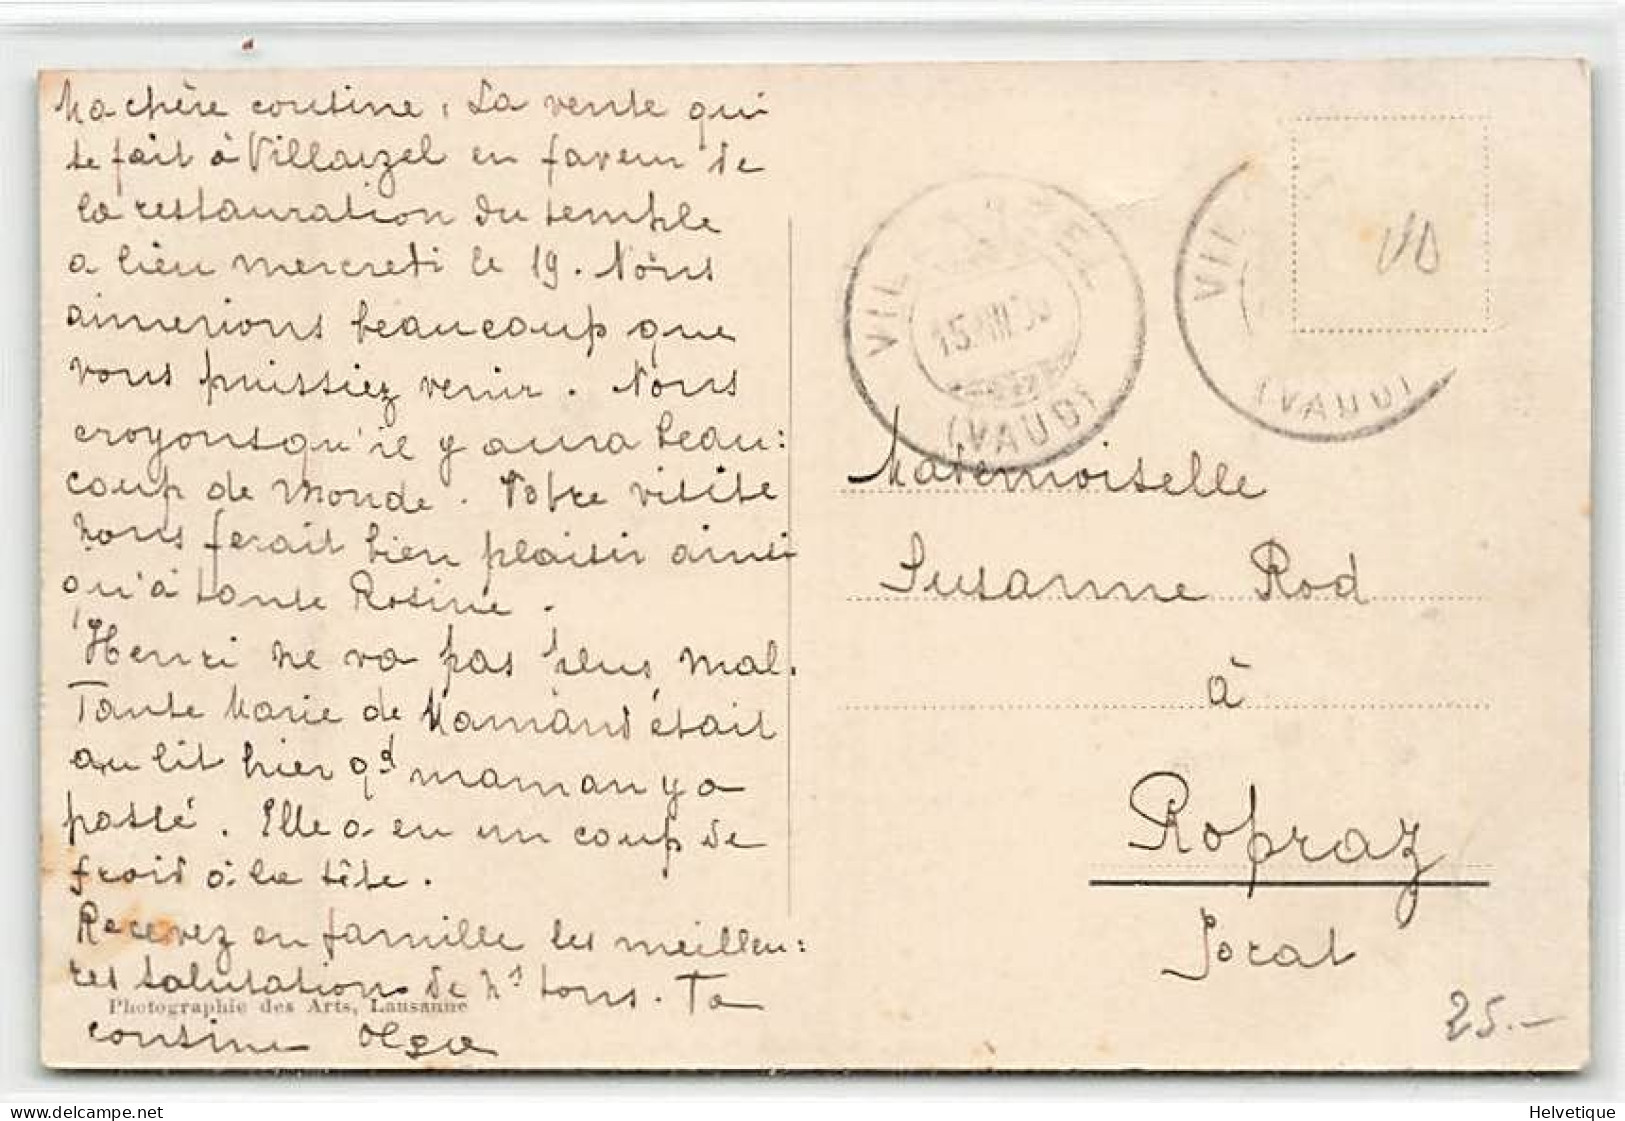 Ma chère cousine, La vente qui
se fait à Villarzel en faveur de
la restauration du temple
a lieu mercredi le 19. Nous
aimerions beaucoup que
vous puissiez venir. Nous
croyons qu'il y aura beau:
coup de monde. Votre visite
nous ferait bien plaisir ainsi
qu'à tante Rosine.
Henri ne va pas plus mal.
Tante Marie de Marnand était
au lit hier qd maman y a
passé. Elle a eu un coup de
froid à la tête.
Recevez en famille les meilleu:
res salutations de ns tous. Ta
Photographie des Arts, Lausanne
cousine Olga
VIL EL
15 VIII 3
(VAUD)
VIL
(VAUD)
VD
Mademoiselle
Susanne Rod
à
Ropraz
Jorat
25.-
delcampe.net
Helvetique